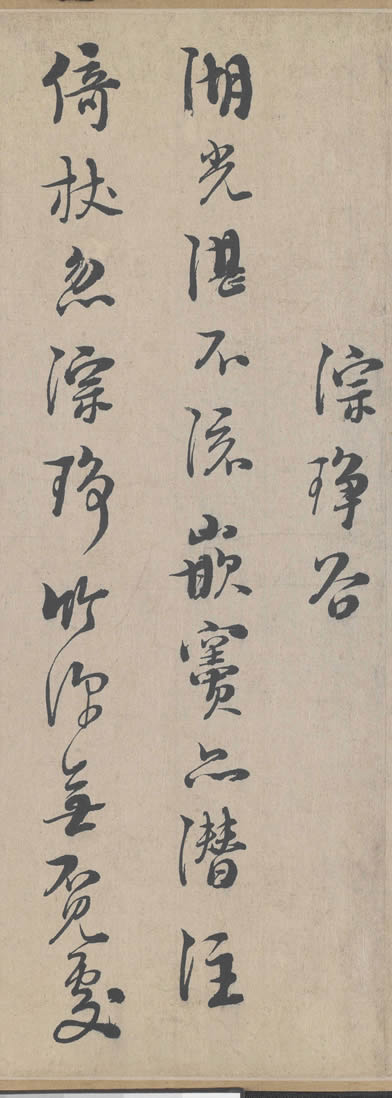 淙琤谷
湖光湛不流嵌竇亦潛注
倚杖忽淙琤竹深無覔處